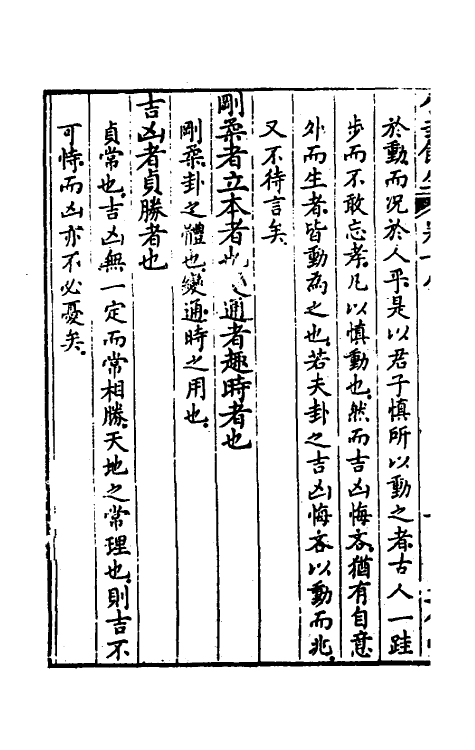 於動而況於人乎是以君子慎所以動之者古人一跬
步而不敢忘孝凡以慎動也然而吉凶悔吝猶有自意
外而生者皆動為之也若夫卦之吉凶悔吝以動而兆
又不待言矣
剛柔者立本者也通者趣時者也
剛柔卦之體也變通時之用也
吉凶者貞勝者也
貞常也吉凶無一定而常相勝天地之常理也則吉不
可恃而凶亦不必憂矣